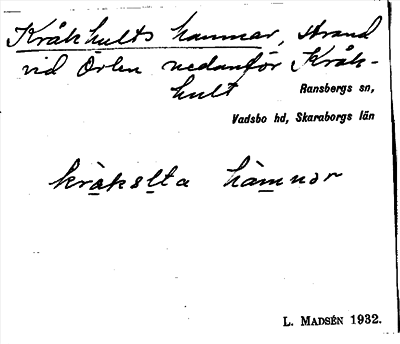 Kråkhults hamnar, strand
vid Örlen nedanför Kråk-
hult
Ransbergs sn,
Vadsbo hd, Skaraborgs län
kråkslta hamnor
L. MADSÉN 1932.